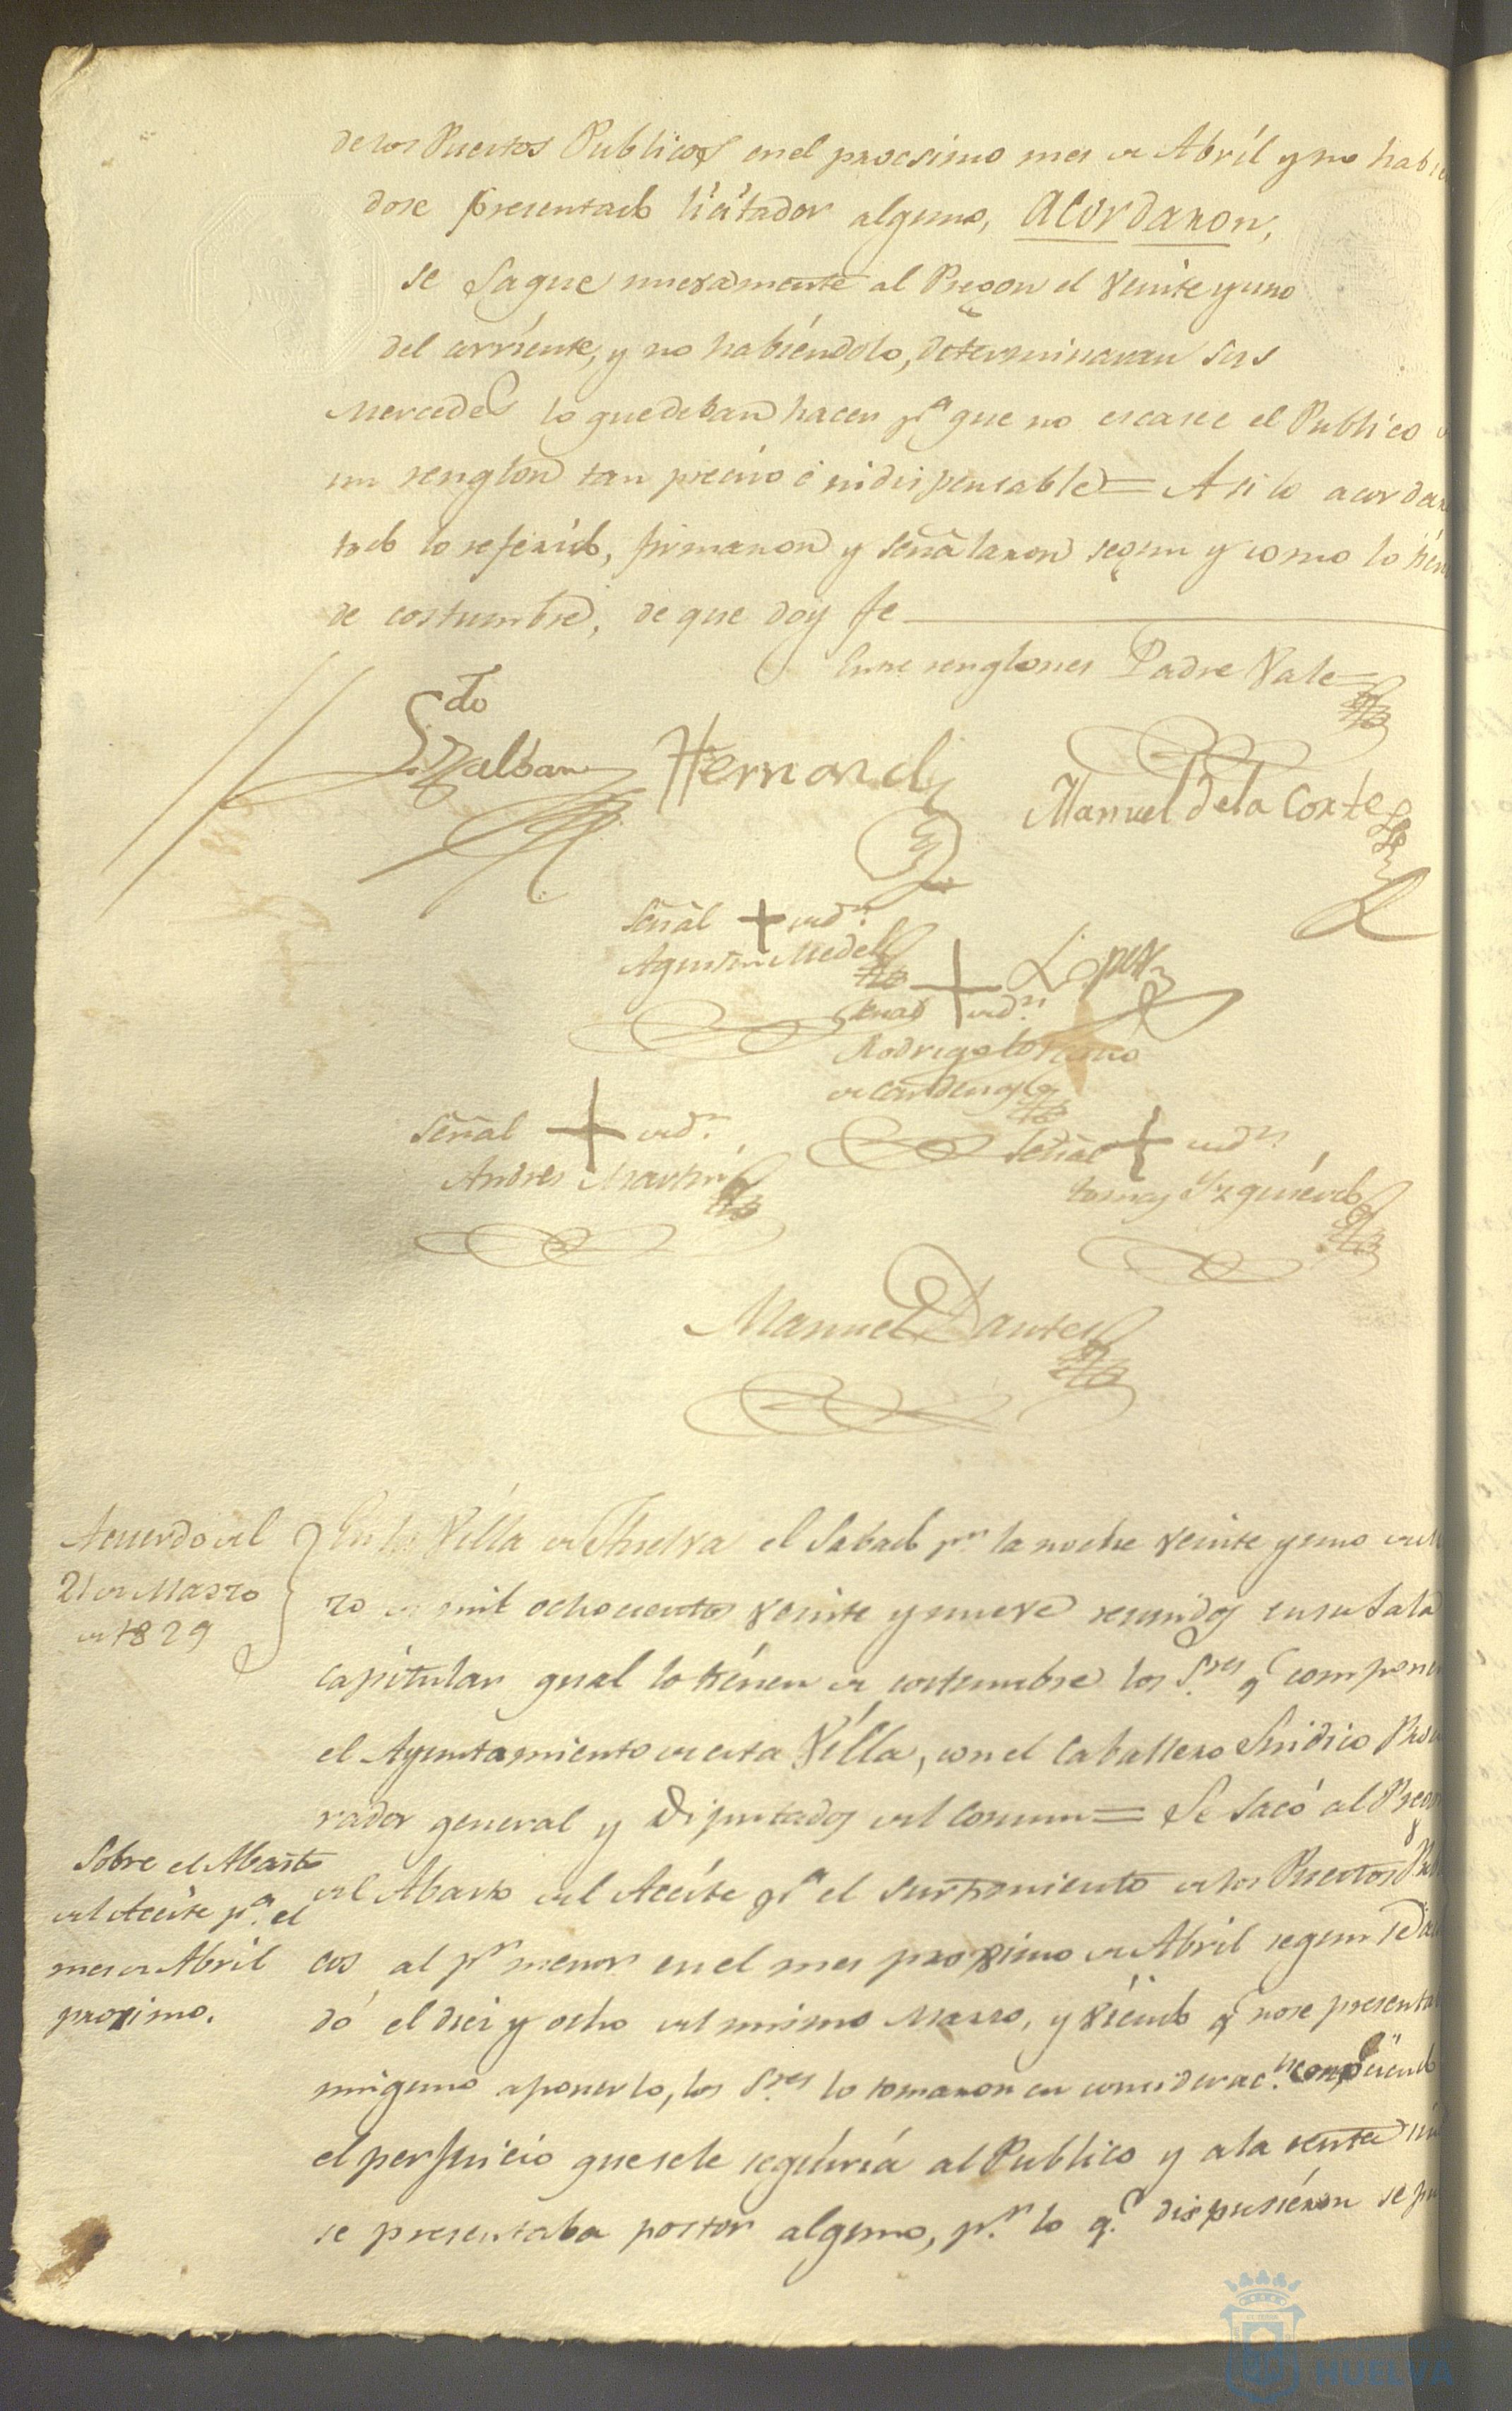 de los Puestos Publicos en el procsimo mes de Abril y no habie
dose presentado licitador alguno, acordaron,
se saque nuevamente al Pregon el veinte y uno
del corriente, y no habiéndolo, determinaran sus
Mercedes lo que deban hacer pª que no escasee el Publico
un renglon tan preciso é indispensable = Asi lo acordar
todo lo referido, firmaron y señalaron segun y como lo tien
de costumbre, de que doy fe
Entre renglones Padre Vale =
Hernand
Manuel de la Corte
Señal + de dn.
Agustin Medel
Lopez
Señal + de dn.
Rodrigo
Señal + de dn.
Andres Martin
Señal + de dn.
tomas Yzquierdo
Manuel Dantes
Acuerdo del
21 de Marzo
de 1829
En la Villa de Huelva el Sabado pr. la noche veinte y uno de M
zo de mil ochocientos veinte y nueve reunidos en su Sala
capitular qual lo tienen de costumbre los Sres. q componen
el Ayuntamiento de esta Villa, con el Caballero Sindico Procu
rador general y Diputados del Comun = Se sacó al Pregon
Sobre el Abasto
del Aceite pª. el
mes de Abril
proximo.
del Abasto del Aceite pª el surtimiento de los Puestos Pu
cos al pr menor en el mes proximo de Abril segun se a
dó el diez y ocho del mismo Marzo, y viendo q no se presenta
ninguno a ponerlo, los Sres. lo tomaron en considerac.n
el perjuicio que se le seguiria al Publico y a la renta
se presentaba postor alguno, pr. lo q.e dispusiéron se
HUELVA